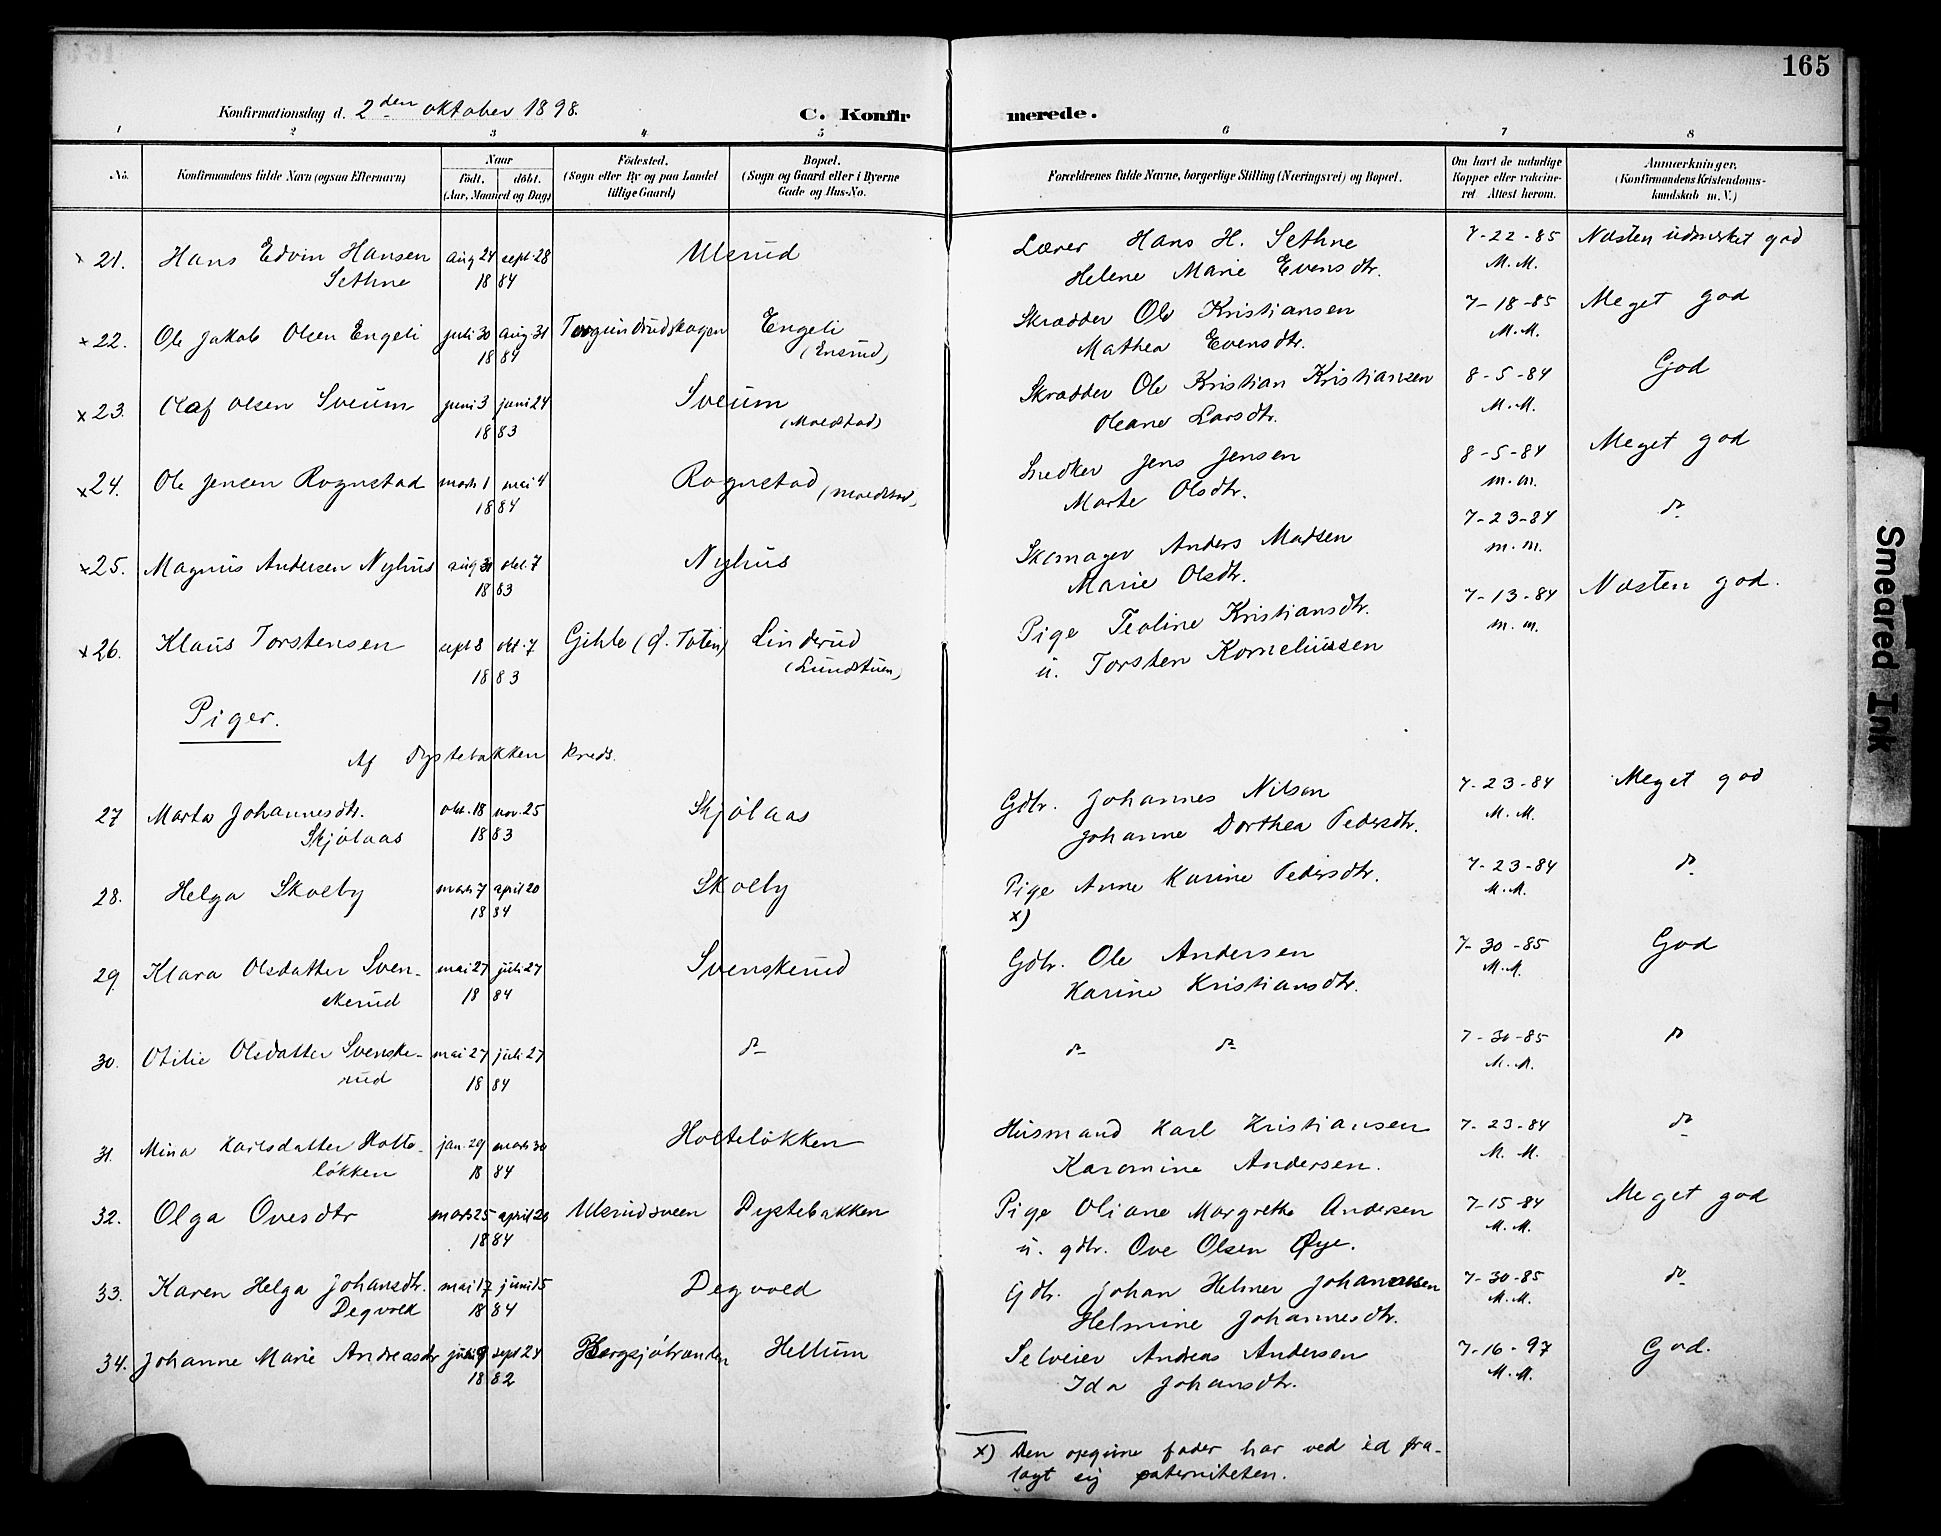 165
Konfirmationsdag d. 2den oktober 1898.
C. Konfirmerede.
1 2 3 4 5 6 7 8
No. Konfirmandens fulde Navn (ogsaa Efternavn) Naar født. døbt. (Aar, Maaned og Dag) Fødested. (Sogn eller By og paa Landet tillige Gaard) Bopæl. (Sogn og Gaard eller i Byerne Gade og Hus-No. Forældrenes fulde Navne, borgerlige Stilling (Næringsvei) og Bopæl. Om havt de naturlige Kopper eller vakcineret Attest herom. Anmærkninger. (Konfirmandens Kristendomskundskab m. V.)
x 21. Hans Edvin Hansen aug 24 sept. 28 Ulsrud Lærer Hans H. Sethne 7-22-85 Næsten udmerket god
Sethne 1884 Helene Marie Evensdtr. M.M.
x 22. Ole Jakob Olsen Engeli juli 30 aug 31 Torgundrudskogen Engeli Skrædder Ole Kristiansen 7-18-85 Meget god
1884 (Ensrud) Mathea Evensdtr. M.M.
x 23. Olaf Olsen Sveum juni 3 juni 24 Sveum Skrædder Ole Kristian Kristiansen 8-5-84 God
1883 (Mældstad) Oleane Larsdtr. M.M.
x 24. Ole Jensen Rognstad marts 1 mai 4 Rognstad (Mældstad) Snedker Jens Jensen 8-5-84 Meget god
1884 Marte Olsdtr. m.m.
x 25. Magnus Andersen Nyhus aug 30 okt. 7 Nyhus Skomager Anders Madsen 7-23-84 do
1883 Marie Olsdtr. m.m.
x 26. Klaus Torstensen sept 8 okt. 7 Gihle (Ø. Toten) Linderud Pige Teoline Kristiansdtr. 7-13-84 Næsten god.
1883 (Lundstuen) u. Torsten Korneliussen m.m.
Piger.
Af Dystebakken kreds.
27 Marta Johannesdtr. okt. 18 nov. 25 Skjølaas Gdbr. Johannes Nilsen 7-23-84 Meget god
Skjølaas 1883 Johanne Dorthea Pedersdtr. M.M.
28. Helga Skolby marts 7 april 20 Skolby Pige Anne Karine Pedersdtr. 7-23-84 do
1884 x) M.M.
29. Klara Olsdatter Sven- mai 27 juli 27 Svenskerud Gdbr. Ole Andersen 7-30-85 God
skerud 1884 Karine Kristiansdtr. M.M.
30. Otilie Olsdatter Svenske- mai 27 juli 27 do do do 7-30-85 do
rud 1884 M.M.
31. Mina Karlsdatter Holte- jan. 29 marts 30 Holteløkken Husmand Karl Kristiansen 7-23-84 do
løkken 1884 Karomine Andersen. M.M.
32. Olga Ovesdtr marts 25 april 20 Ulsrudsveen Dystebakken Pige Oliane Margrethe Andersen 7-15-84 Meget god
1884 u. gdbr. Ove Olsen Øye. M.M.
33. Karen Helga Johansdtr. mai 17 juni 15 Degvold Gdbr. Johan Helmer Johannesen 7-30-85 do
Degvold 1884 Helmine Johannesdtr. M.M.
34. Johanne Marie Andreasdtr juli 9 sept 24 Bergsjøbraaten Hellum Selveier Andreas Andersen 7-16-97 God.
1882 Ida Johansdtr. M.M.
x) Den opgivne fader har ved ed fra-
lagt sig paterniteten.
Smeared Ink